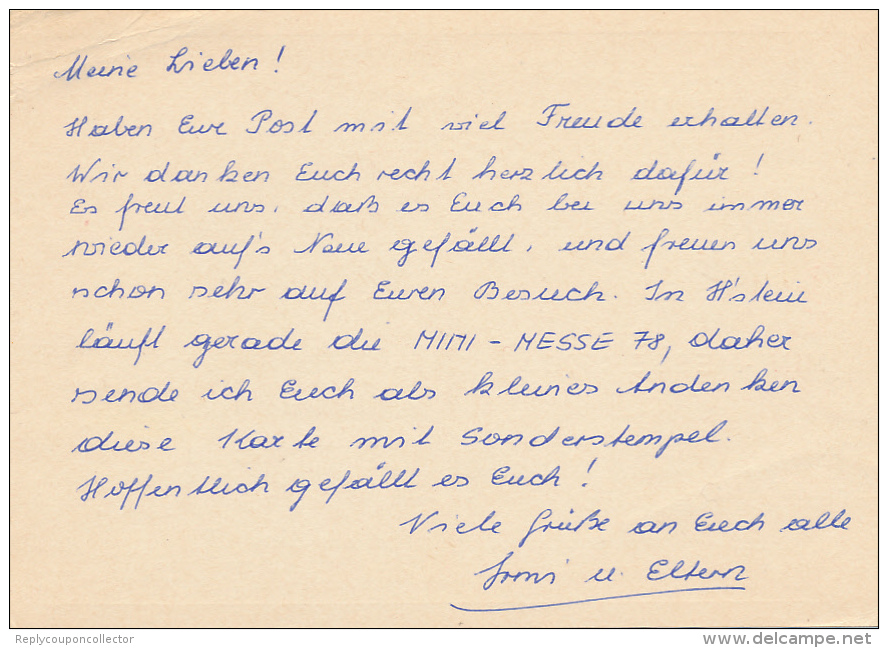 Meine Lieben!
Haben Eure Post mit viel Freude erhalten.
Wir danken Euch recht herzlich dafür!
Es freut uns, daß es Euch bei uns immer
wieder auf's Neue gefällt, und freuen uns
schon sehr auf Euren Besuch. In H'stein
läuft gerade die MINI-MESSE 78, daher
sende ich Euch als kleines Andenken
diese Karte mit Sonderstempel.
Hoffentlich gefällt es Euch!
Viele Grüße an Euch alle
Irmi u. Eltern
Replycouponcollector
www.delcampe.net